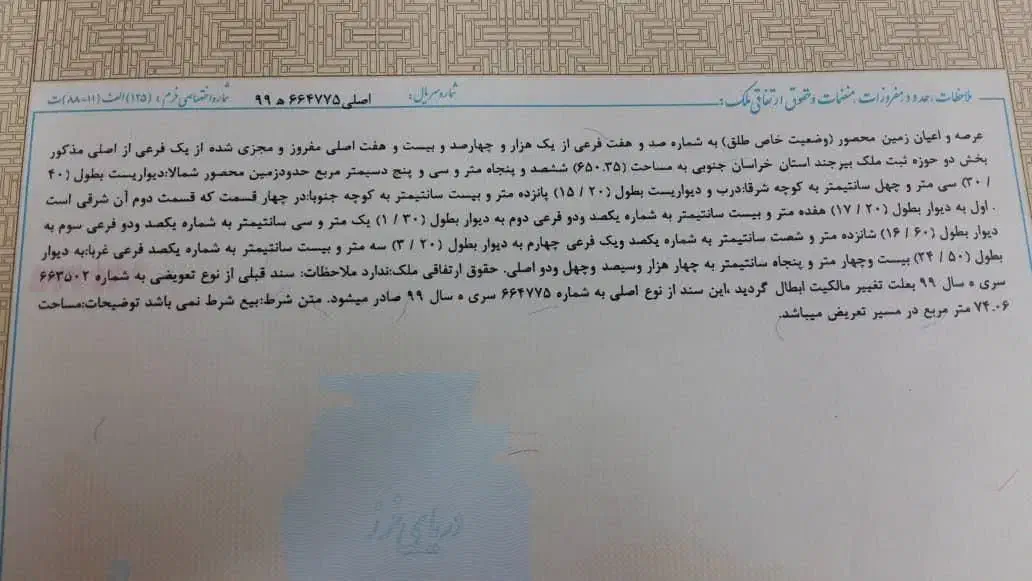 ملاحظات، حدود، مفروزات، منضمات و حقوق ارتفاقی ملک: شماره سریال: اصلی ۶۶۴۷۷۵ ه ۹۹ شماره اختصاصی فرم: (۱۲۵) الف (۱۱-۸۸) ت
عرصه و اعیان زمین محصور (وضعیت خاص طلق) به شماره صد و هفت فرعی از یک هزار و چهارصد و بیست و هفت اصلی مفروز و مجزی شده از یک فرعی از اصلی مذکور
بخش دو حوزه ثبت ملک بیرجند استان خراسان جنوبی به مساحت (۶۵۰.۳۵) ششصد و پنجاه متر و سی و پنج دسیمتر مربع حدودزمین محصور شمالا:دیواریست بطول (۴۰
/ ۳۰) سی متر و چهل سانتیمتر به کوچه شرقا:درب و دیواریست بطول (۲۰ / ۱۵) پانزده متر و بیست سانتیمتر به کوچه جنوبا:در چهار قسمت که قسمت دوم آن شرقی است
. اول به دیوار بطول (۲۰ / ۱۷) هفده متر و بیست سانتیمتر به شماره یکصد ودو فرعی دوم به دیوار بطول (۳۰ / ۱) یک متر و سی سانتیمتر به شماره یکصد ودو فرعی سوم به
دیوار بطول (۶۰ / ۱۶) شانزده متر و شصت سانتیمتر به شماره یکصد ویک فرعی چهارم به دیوار بطول (۲۰ / ۳) سه متر و بیست سانتیمتر به شماره یکصد فرعی غربا:به دیوار
بطول (۵۰ / ۲۴) بیست وچهار متر و پنجاه سانتیمتر به چهار هزار وسیصد وچهل ودو اصلی. حقوق ارتفاقی ملک:ندارد ملاحظات: سند قبلی از نوع تعویضی به شماره ۶۶۳۵۰۲
سری ه سال ۹۹ بعلت تغییر مالکیت ابطال گردید ،این سند از نوع اصلی به شماره ۶۶۴۷۷۵ سری ه سال ۹۹ صادر میشود. متن شرط:بیع شرط نمی باشد توضیحات:مساحت
۷۴.۰۶ متر مربع در مسیر تعریض میباشد.